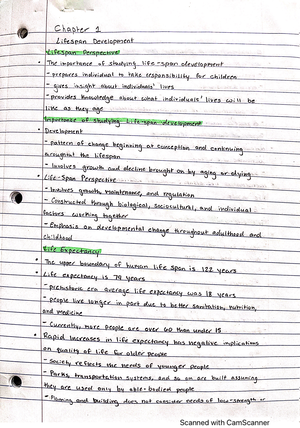 Chapter 1
Lifespan Development
Lifespan Perspective
• The importance of studying life-span development
- prepares individual to take responsibility for children
- gives insight about individuals' lives
- provides knowledge about what individuals' lives will be
like as they age
Importance of studying life-span development
• Development
- pattern of change beginning at conception and continuing
throughout the lifespan
- Involves growth and decline brought on by aging or dying
• Life-Span Perspective
- Involves growth, maintenance, and regulation
- Constructed through biological, sociocultural, and individual
factors working together
- Emphasis on developmental change throughout adulthood and
childhood
Life Expectancy
• The upper boundary of human life span is 122 years
• Life expectancy is 79 years
- prehistoric era average life expectancy was 18 years
- people live longer in part due to better sanitation, nutrition,
and medicine
- Currently, more people are over 60 than under 15
• Rapid increases in life expectancy has negative implications
on quality of life for older people
- Society reflects the needs of younger people
- Parks, transportation systems, and so on are built assuming
they are used only by able-bodied people
- Planning and building does not consider needs of low-strength or
Scanned with CamScanner